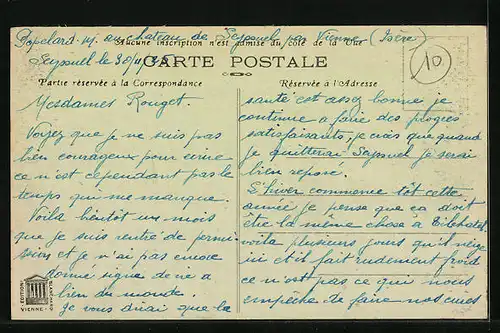 Popelard M. au château de Seyssuel par Vienne (Isère)
Aucune inscription n'est admise du côté de la Vue
Seyssuel le 30/11/
CARTE POSTALE
10
Partie réservée à la Correspondance
Réservée à l'Adresse
Mesdames Rouget.
Voyez que je ne suis pas
bien courageux pour écrire
ce n'est cependant pas le
temps qui me manque.
Voilà bientôt un mois
que je suis rentré de permi-
ssion et je n'ai pas encore
donné signe de vie à
bien du monde.
Je vous dirai que la
santé est assez bonne je
continue à faire des progrès
satisfaisants, je crois que quand
je quitterai Seyssuel je serai
bien reposé.
L'hiver commence tôt cette
année je pense que ça doit
être la même chose à
voilà plusieurs jours qu'il neige
ici et il fait rudement froid
ce n'est pas ce qui nous
empêche de faire nos cures
EDITION
VIENNE